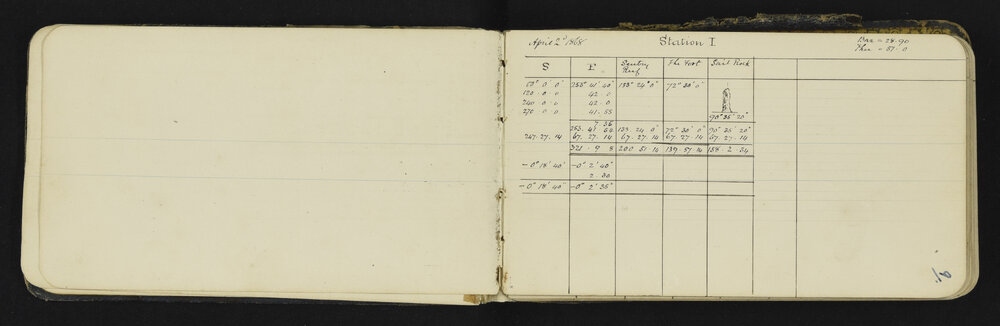 April 2d 1868 Station I Bar = 28.90
Ther = 51.0
S F Sentry Reef The Port Sail Rock
0° 0' 0" 253° 41' 40" 133° 24' 0" 72° 30' 0"
120 0 0 42. 0
240 0 0 42. 0
270 0 0 41. 55 90° 35' 20"
7 35
253. 41 54 133. 24. 0" 72° 30' 0" 90° 35' 20"
247. 27. 14 67. 27. 14 67. 27. 14 67. 27. 14 67. 27. 14
321 . 9 8 200 51 14 139. 57. 14 158. 2. 34
-0° 18' 40" -0° 2' 40"
2. 30
-0° 18' 40" -0° 2' 35"